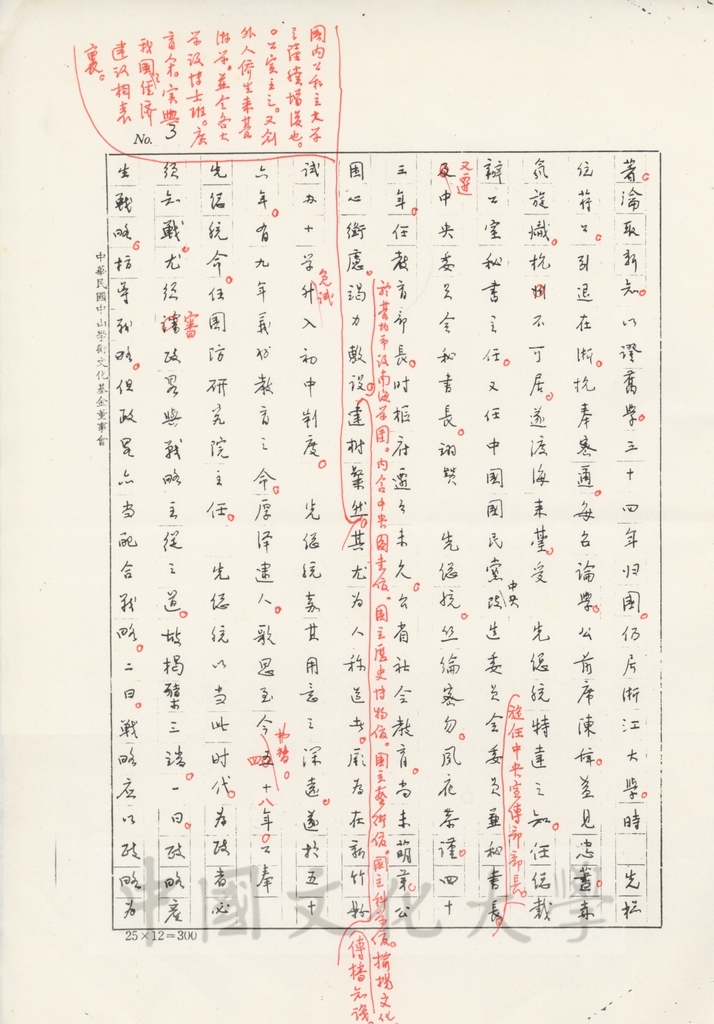 國內公私立大學
之陸續增復也。
公實主之。又創
外人僑生來華
游學。並令各大
學設博士班。廣
育人才。實與
我國經濟
建設相表
裏。
No. 3
著淪取新知。以證舊學。三十四年歸國。仍居浙江大學。時 先總
統蔣公引退在浙。抗奉密邇。每名論學。公前席陳
氛旋熾。杭州不可居。遂渡海來臺。受 先總統特達之知。任總裁
辦公室秘書主任。又任中國國民黨中央改造委員會委員兼秘書長。
旋任中央宣傳部部長。
又遷中央委員會秘書長。翊贊 先總統。絲綸密勿。夙夜恭謹。四十
三年。任教育部長。時樞府遷臺未久。公省社會教育。尚未萌芽。公
於臺北市設南海學園。內含中央圖書館。國立歷史博物館。國立藝術館。國立科學館。揄揚文化
傳播知識
困心衡慮。竭力敷設。建樹粲然。其尤為人稱道者。厥為在新竹縣
試辦小學升入初中制度。 先總統嘉其用意之深遠。遂於五十
免試
六年。有九年義務教育之令。厚澤逮人。歌思至今弗替。四十八年。公奉
先總統令。任國防研究院主任。 先總統以當此時代。為政者必
須知戰。尤須審政略與戰略主從之道。故揭櫫三端。一曰。政略產
生戰略。指導戰略。但政略亦當配合戰略。二曰。戰略應以政略為
中華民國中山學術文化基金董事會
25×12=300
中國文化大學